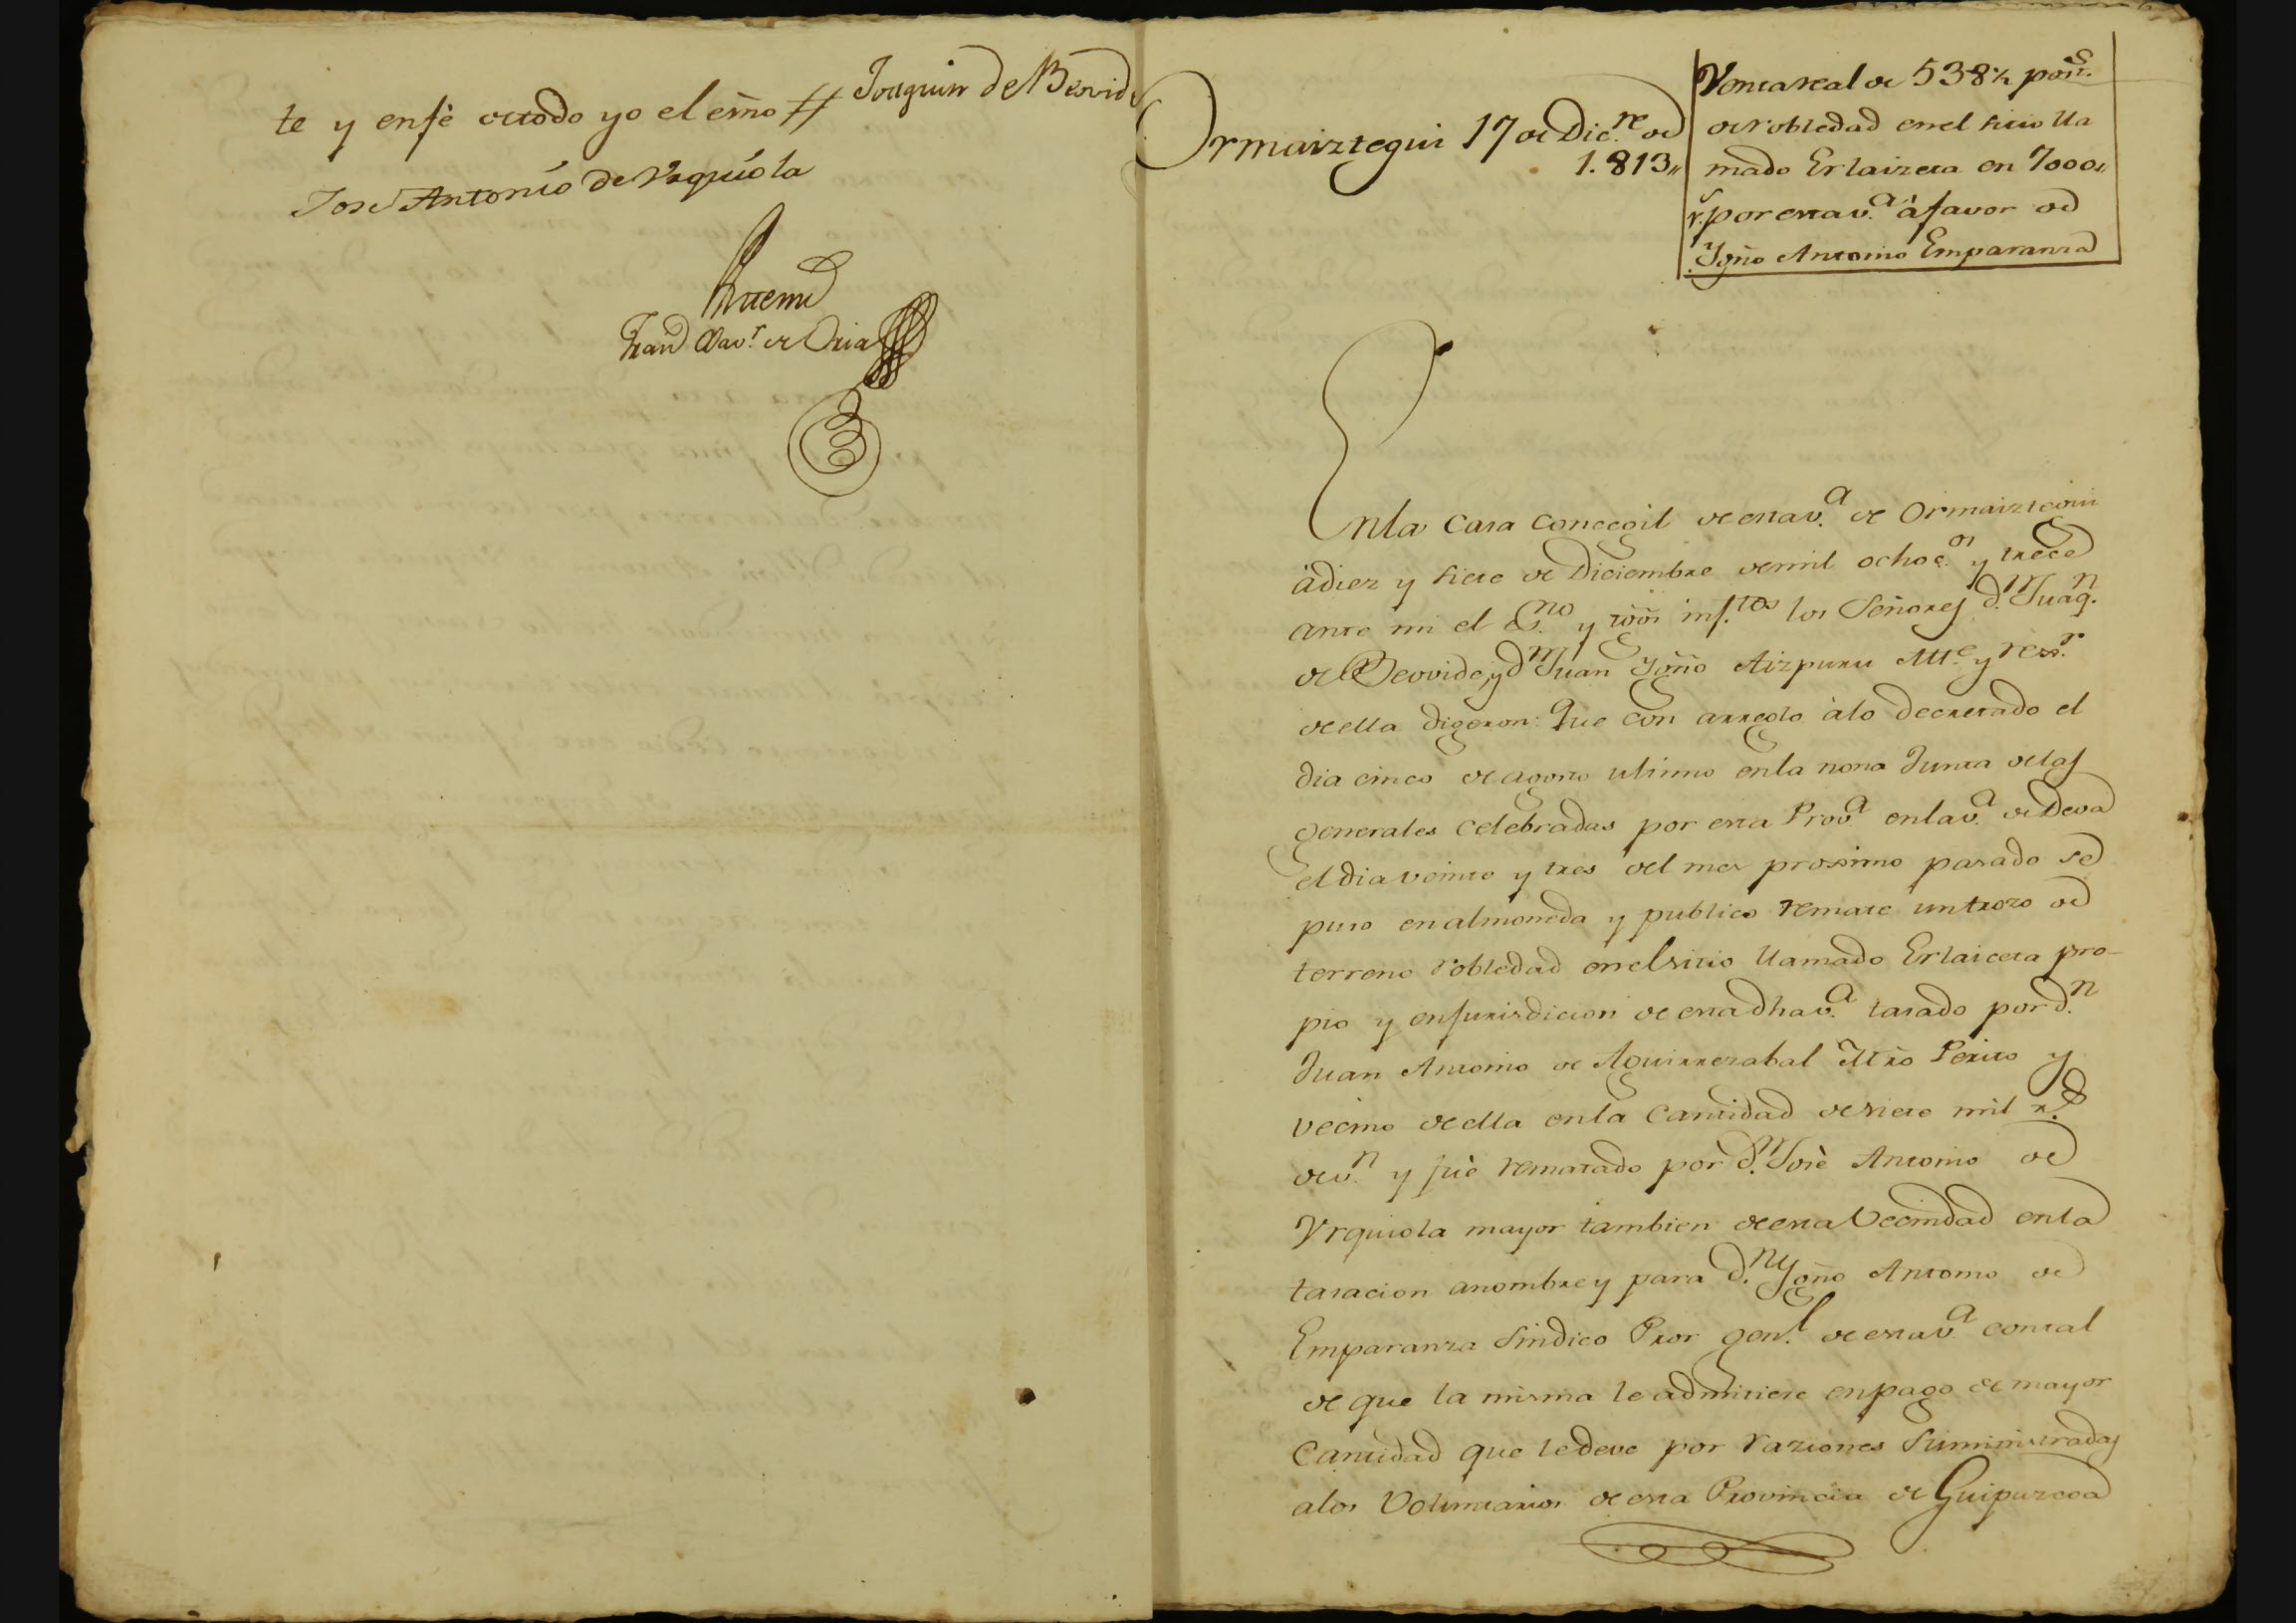 te y enfè de todo yo el esñо // Joaquin de Beovide
Jose Antonio de Vrquiola
Antemi
Fran.co Xav.r de Oria
Ormaiztegui 17 de Dic.re de
1.813,,
Venta real de 538 1/2 post.s
de robledad en el sitio lla
mado Erlaizeta en 7000,,
r.s por esta v.a à favor de
Ygño Antonio Emparanza
Enla Casa Concegil de esta v.a de Ormaiztegui
à diez y siete de Diciembre de mil ochoc.os y trece
ante mi el Es.no y tgõs inf.tos los Señores d.n Juaq.n
de Beovide, y d.n Juan Ygño Aizpuru Alle. y rexr.
de ella digeron: Que con arreglo àlo decretado el
dia cinco de agosto ultimo enla nona Junta delas
generales celebradas por esta Prov.a enla v.a de Deva
el dia veinte y tres del mes prossimo pasado se
puso en almoneda y publico remate un trozo de
terreno robledad en el sitio llamado Erlaiceta pro-
pio y en jurisdicion de esta dha v.a tasado por d.n
Juan Antonio de Aguirrezabal Mro Perito y
vecino de ella enla cantidad de siete mil r.s
de v.n y fuè rematado por d.n Josè Antonio de
Vrquiola mayor tambien de esta Vecindad enla
tasacion a nombre y para d.n Ygño Antonio de
Emparanza Sindico Pror gen.l de esta v.a con tal
de que la misma le admitiese en pago de mayor
Cantidad que le deve por raziones suministradas
alos Voluntarios de esta Provincia de Guipuzcoa